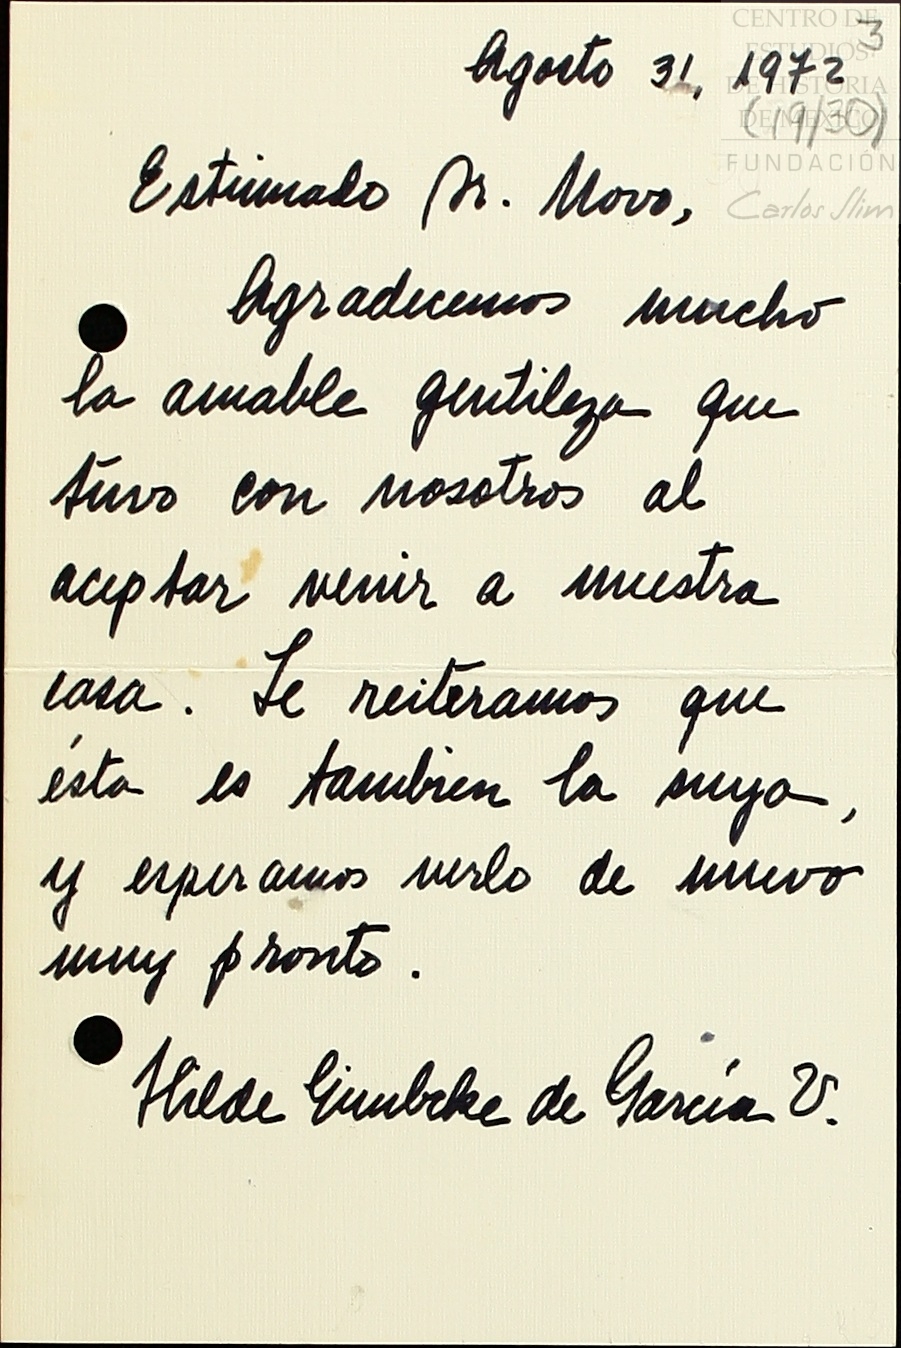 CENTRO DE
ESTUDIOS
DE HISTORIA
DE MÉXICO
FUNDACIÓN
Carlos Slim
3
(19/30)
Agosto 31, 1972
Estimado Sr. Novo,
Agradecemos mucho
la amable gentileza que
tuvo con nosotros al
aceptar venir a nuestra
casa. Le reiteramos que
ésta es tambien la suya,
y esperamos verlo de nuevo
muy pronto.
Hilde de García V.